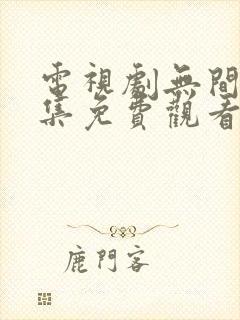 電視劇無間
集免費觀看
鹿門客